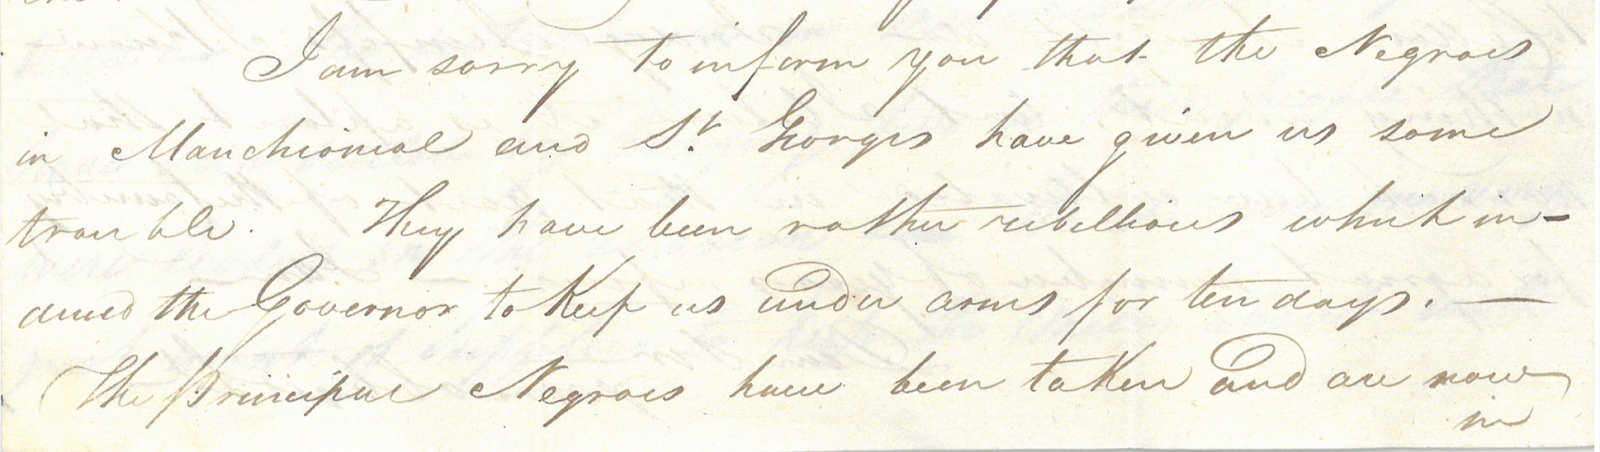 I am sorry to inform you that the Negroes
in Manchioneal and St. Georges have given us some
trouble. They have been rather rebellious which in-
duced the Governor to Keep us under arms for ten days. —
The Principal Negroes have been taken and are now
in